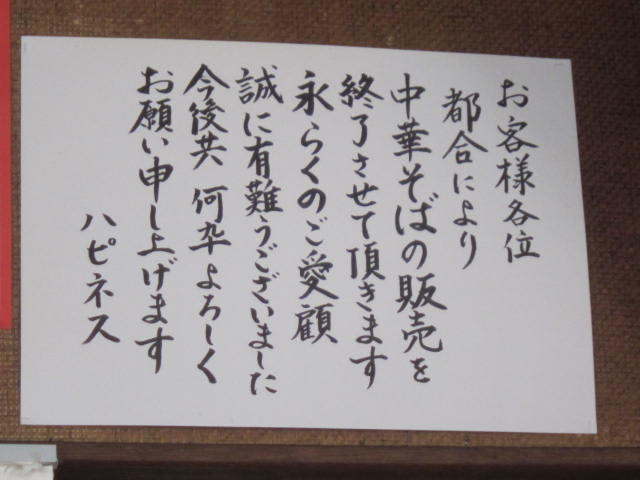 お客様各位
都合により
中華そばの販売を
終了させて頂きます
永らくのご愛顧
誠に有難うございました
今後共 何卒よろしく
お願い申し上げます
ハピネス